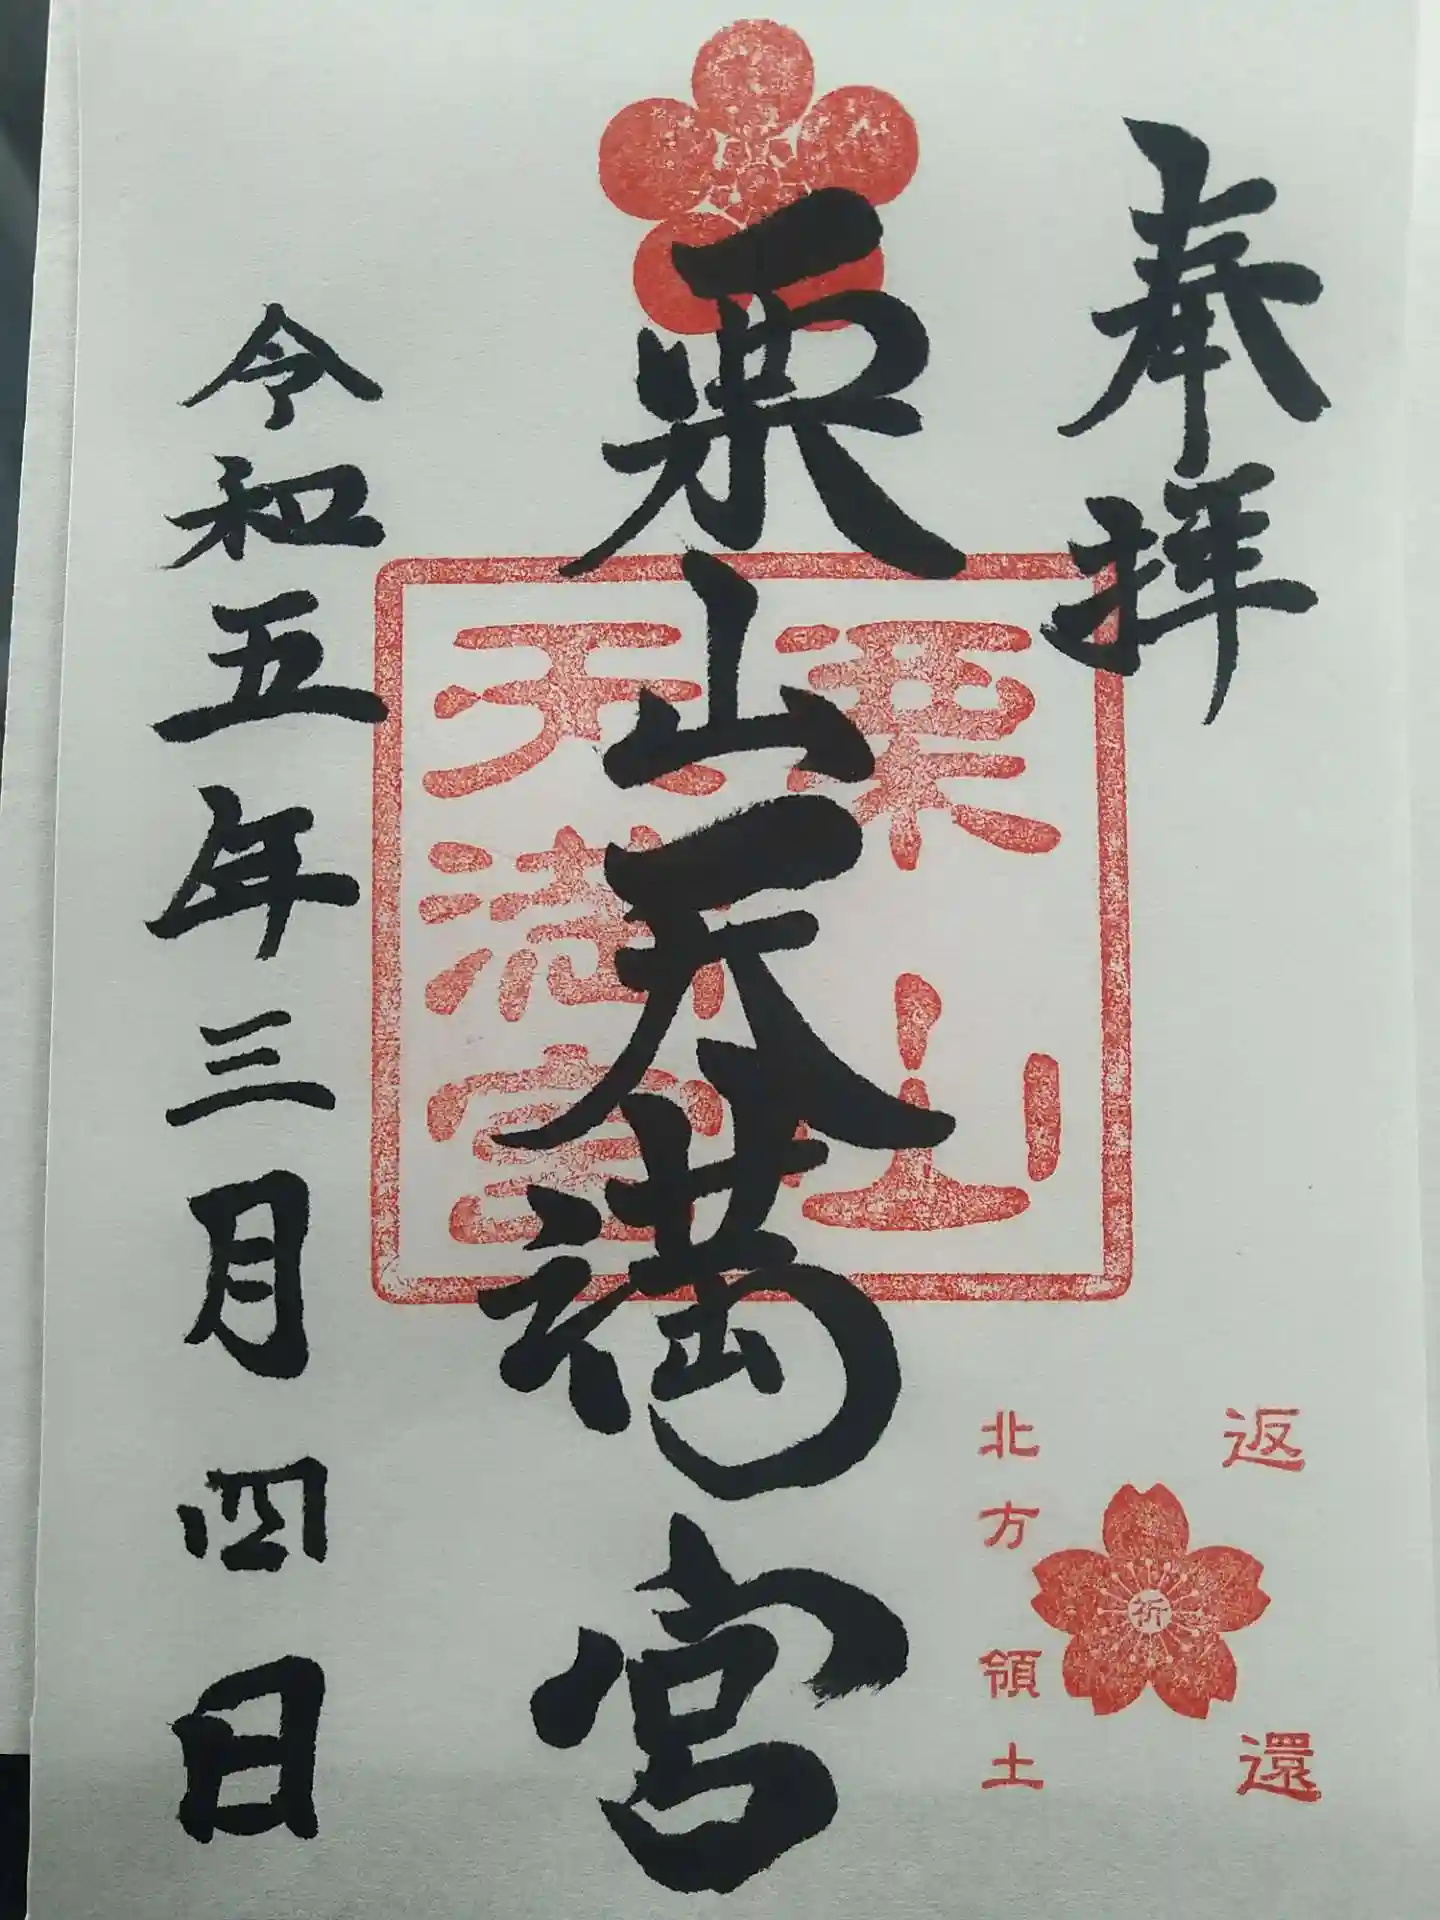 奉拝
栗山天満宮
令和五年三月四日
栗山
天満宮
返還
祈
北方領土